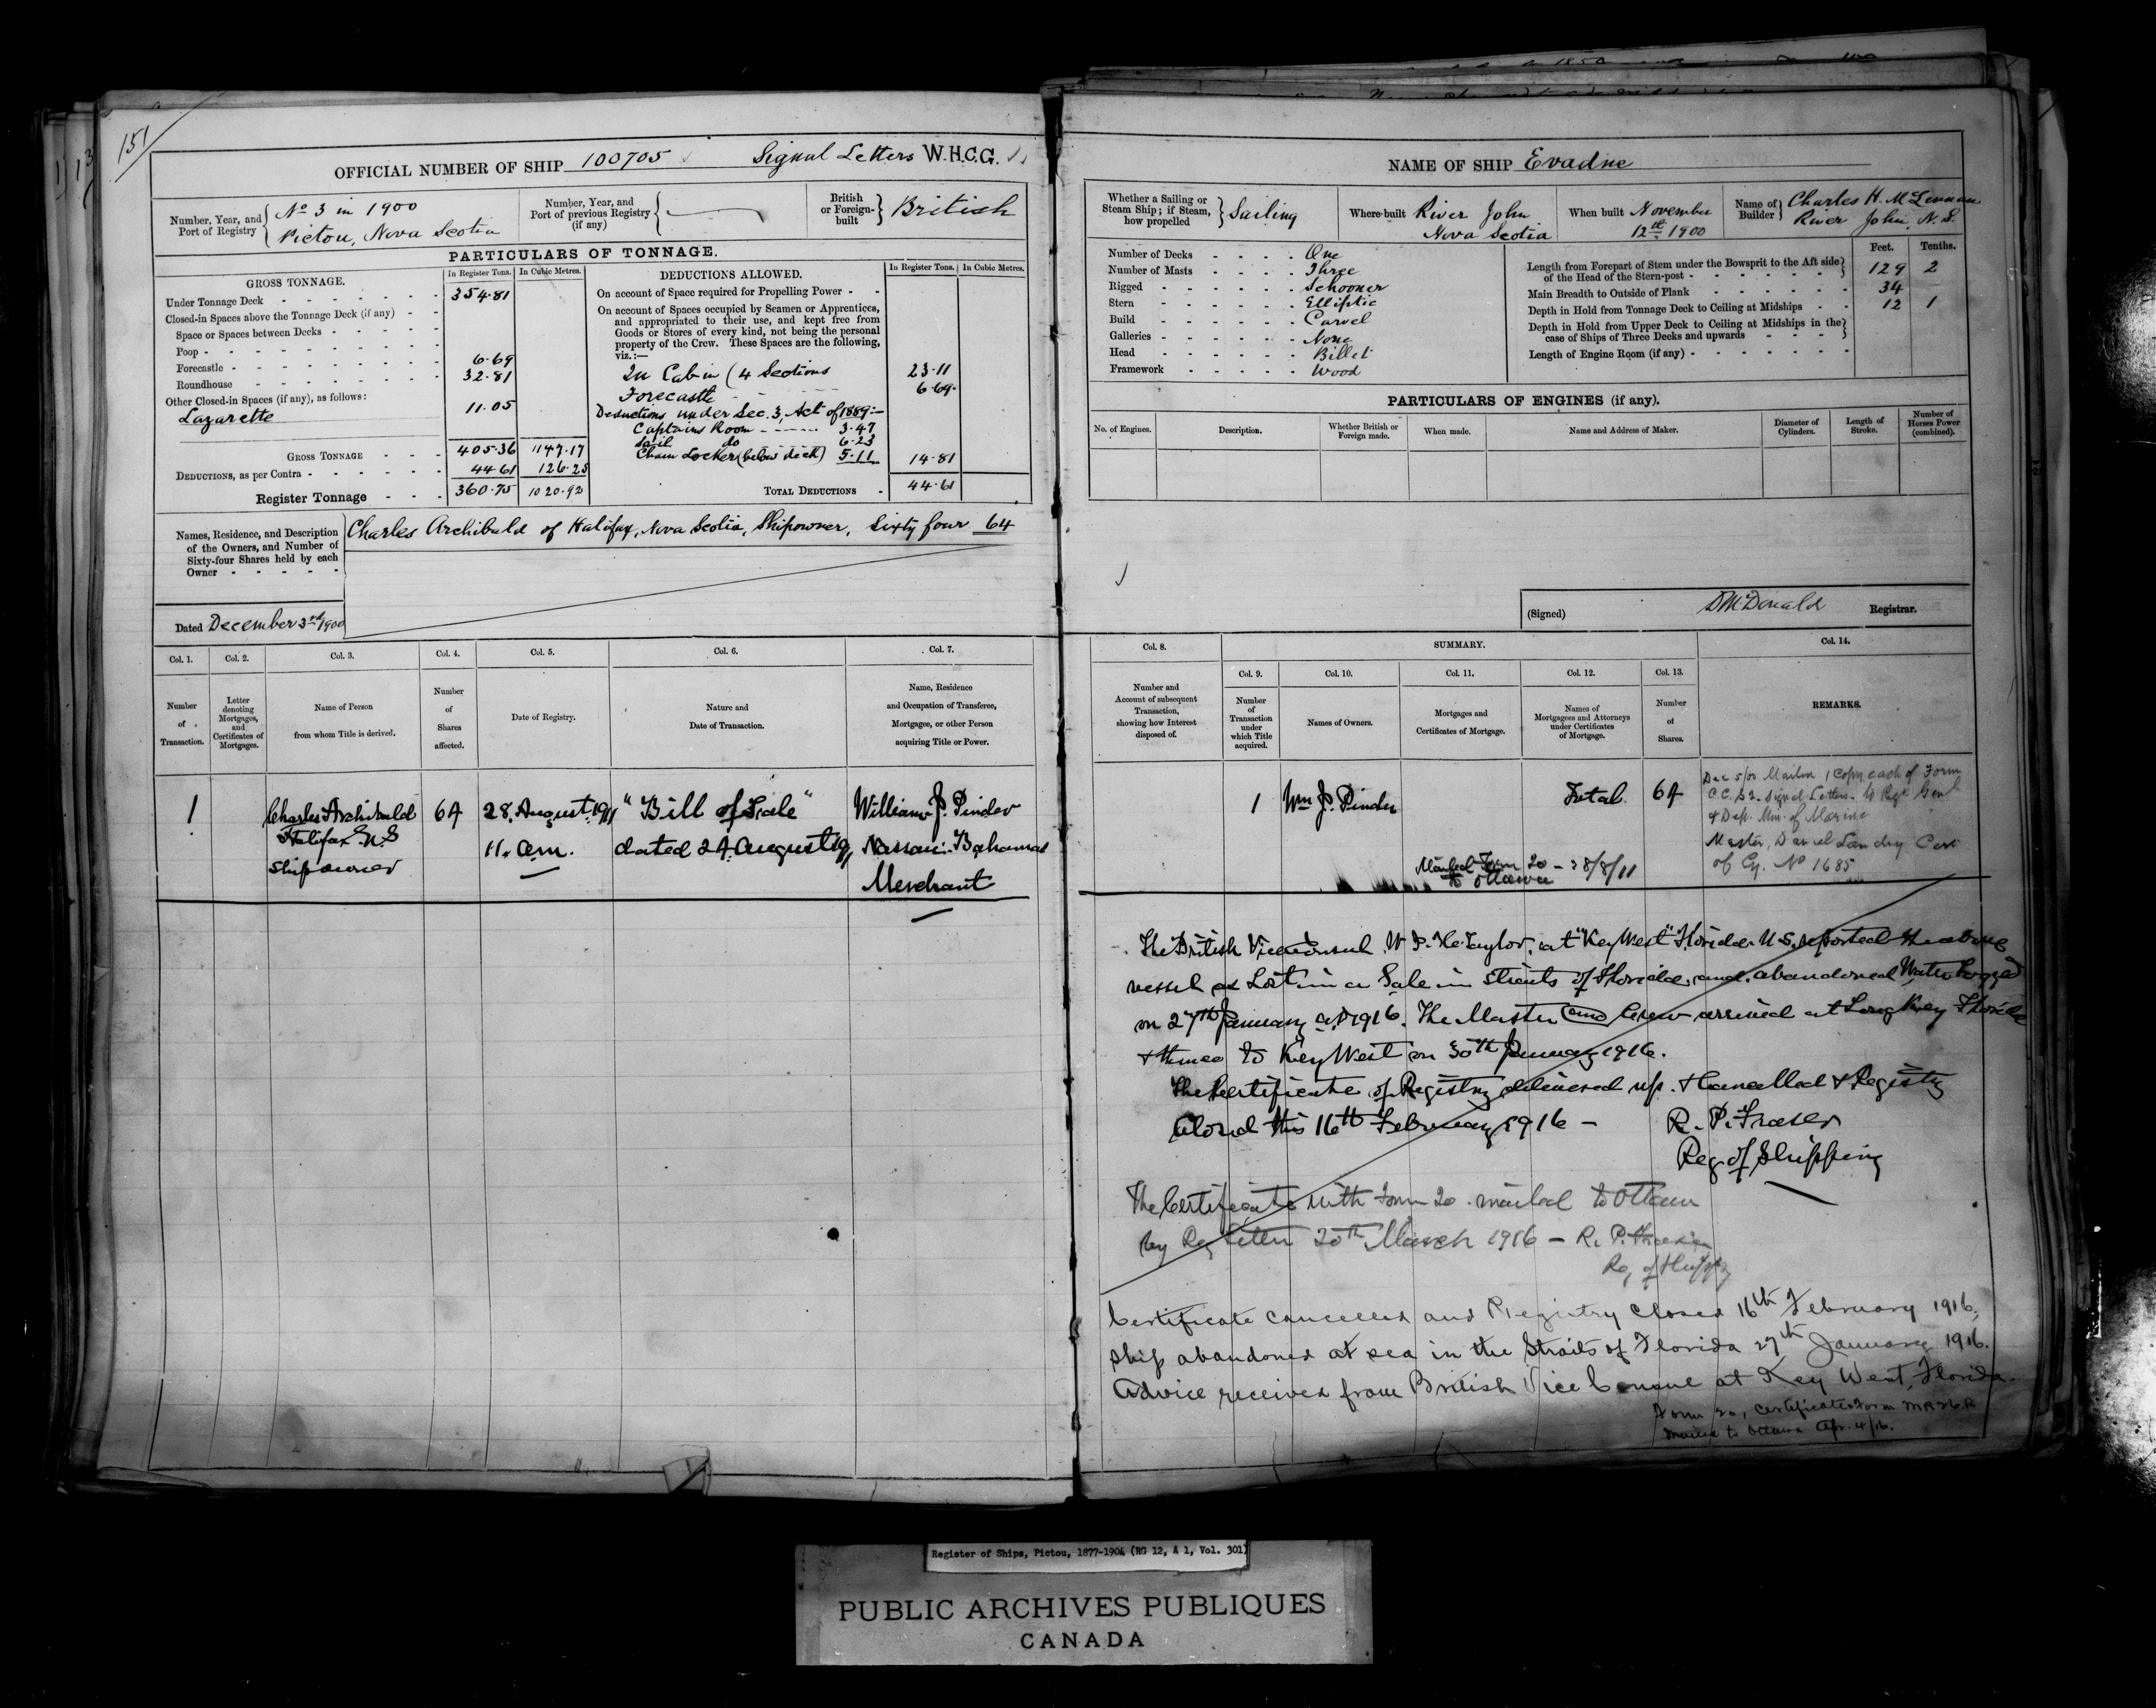 151
OFFICIAL NUMBER OF SHIP 100705 Signal Letters W.H.C.G.
Number, Year, and Port of Registry No 3 in 1900 Pictou, Nova Scotia
Number, Year, and Port of previous Registry (if any)
British or Foreign-built British
PARTICULARS OF TONNAGE.
GROSS TONNAGE. In Register Tons. In Cubic Metres.
Under Tonnage Deck 354.81
Closed-in Spaces above the Tonnage Deck (if any)
Space or Spaces between Decks
Poop
Forecastle 6.69
Roundhouse 32.81
Other Closed-in Spaces (if any), as follows:
Lazarette 11.05
GROSS TONNAGE 405.36 1147.17
DEDUCTIONS, as per Contra 44.61 126.25
Register Tonnage 360.75 1020.92
DEDUCTIONS ALLOWED. In Register Tons. In Cubic Metres.
On account of Space required for Propelling Power
On account of Spaces occupied by Seamen or Apprentices,
and appropriated to their use, and kept free from
Goods or Stores of every kind, not being the personal
property of the Crew. These Spaces are the following,
viz.:—
In Cabin (4 Sections 23.11
Forecastle 6.69
Deductions under Sec. 3, Act of 1889:—
Captains Room 3.47
Sail do 6.23
Chain Locker (below deck) 5.11 14.81
TOTAL DEDUCTIONS 44.61
Names, Residence, and Description
of the Owners, and Number of
Sixty-four Shares held by each
Owner
Charles Archibald of Halifax, Nova Scotia, Shipowner, Sixty four 64
Dated December 3rd 1900
Col. 1. Col. 2. Col. 3. Col. 4. Col. 5. Col. 6. Col. 7.
Number of Transaction.
Letter denoting Mortgages, and Certificates of Mortgages.
Name of Person from whom Title is derived.
Number of Shares affected.
Date of Registry.
Nature and Date of Transaction.
Name, Residence and Occupation of Transferee, Mortgagee, or other Person acquiring Title or Power.
1 Charles Archibald 64 28. August. 1911 "Bill of Sale" William J. Pinder
Halifax N.S 11. am. dated 24 August 1911 Nassau Bahamas
Shipowner Merchant
NAME OF SHIP Evadne
Whether a Sailing or Steam Ship; if Steam, how propelled Sailing
Where built River John Nova Scotia
When built November 12th 1900
Name of Builder Charles H. McLennan River John, N.S.
Number of Decks One
Number of Masts Three
Rigged Schooner
Stern Elliptic
Build Carvel
Galleries None
Head Billet
Framework Wood
Feet. Tenths.
Length from Forepart of Stem under the Bowsprit to the Aft side of the Head of the Stern-post 129 2
Main Breadth to Outside of Plank 34
Depth in Hold from Tonnage Deck to Ceiling at Midships 12 1
Depth in Hold from Upper Deck to Ceiling at Midships in the case of Ships of Three Decks and upwards
Length of Engine Room (if any)
PARTICULARS OF ENGINES (if any).
No. of Engines. Description. Whether British or Foreign made. When made. Name and Address of Maker. Diameter of Cylinders. Length of Stroke. Number of Horses Power (combined).
(Signed) D McDonald Registrar.
Col. 8. SUMMARY. Col. 14.
Col. 9. Col. 10. Col. 11. Col. 12. Col. 13.
Number and Account of subsequent Transaction, showing how Interest disposed of.
Number of Transaction under which Title acquired.
Names of Owners.
Mortgages and Certificates of Mortgage.
Names of Mortgagees and Attorneys under Certificates of Mortgage.
Number of Shares.
REMARKS.
1 Wm J. Pinder Total 64
Mailed Form 20 – 28/8/11
to Ottawa
Dec 5/00 Mailed 1 Copy each of Form
C.C. & 2. Signal Letters. to Regr Genl
& Dep. Min. of Marine
Master, Daniel Landry Cert
of Cy. No 1685
The British Vice Consul W. J. H. Taylor. at "Key West" Florida U.S. reported the above
vessel as Lost in a Gale in Straits of Florida, and abandoned Water Logged
on 27th January AD 1916. The Master and Crew arrived at Long Key Florida
& thence to Key West on 30th January 1916.
The Certificate of Registry delivered up. & Cancelled & Registry
Closed this 16th February 1916 –
R. P. Fraser
Reg of Shipping
The Certificate with Form 20. mailed to Ottawa
by Reg letter 20th March 1916 – R. P. Fraser
Reg of Shipg
Certificate cancelled and Registry closed 16th February 1916,
Ship abandoned at sea in the Straits of Florida 27th January 1916.
Advice received from British Vice Consul at Key West, Florida.
Form 20, Certificate & Form MR26R
mailed to Ottawa Apr. 4/16.
Register of Ships, Pictou, 1877-1904 (RG 12, A 1, Vol. 301)
PUBLIC ARCHIVES PUBLIQUES
CANADA